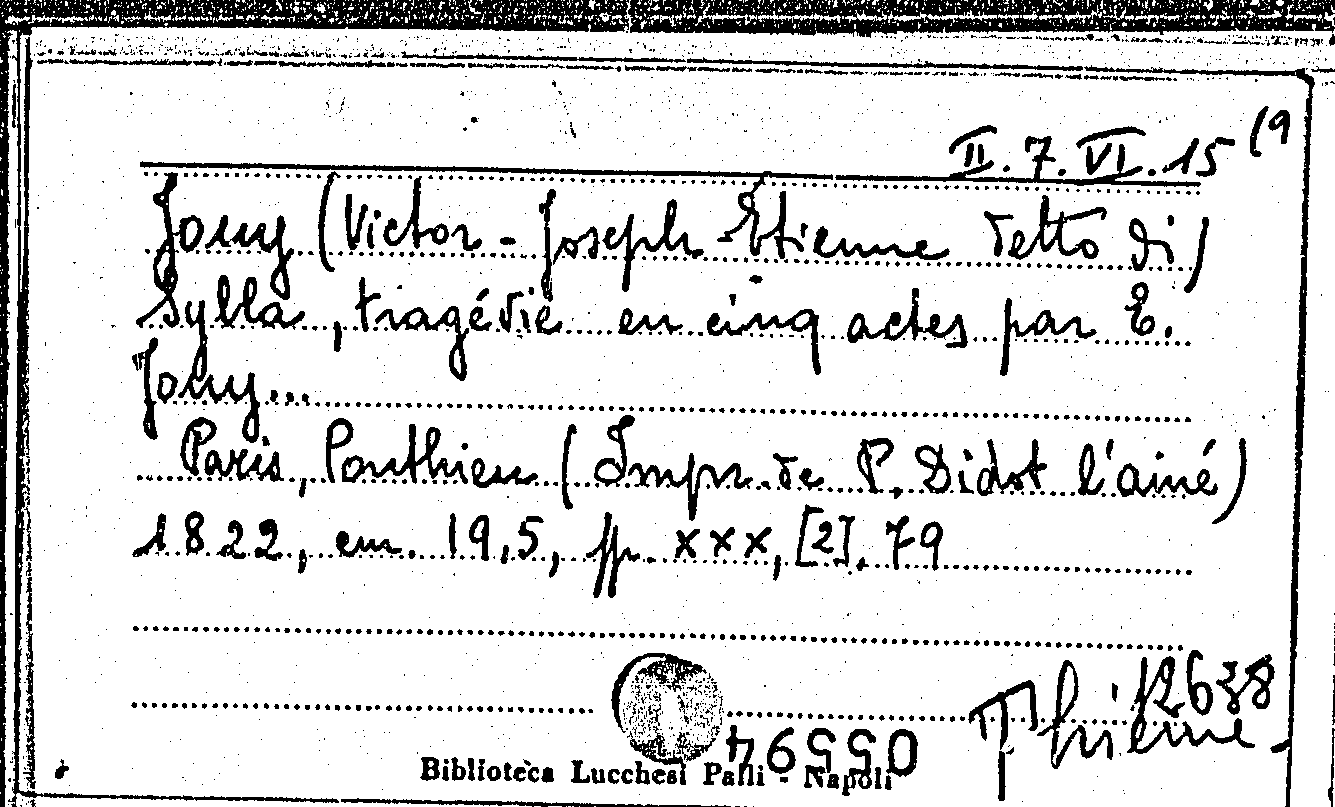 II.7.VI.15(9
Jouy (Victor-Joseph-Étienne detto di)
Sylla, tragédie en cinq actes par E.
Jouy...
Paris, Ponthieu (Impr. de P. Didot l'ainé)
1822, cm. 19,5, pp. XXX, [2], 79
12638
Thieme
055994
Biblioteca Lucchesi Palli - Napoli